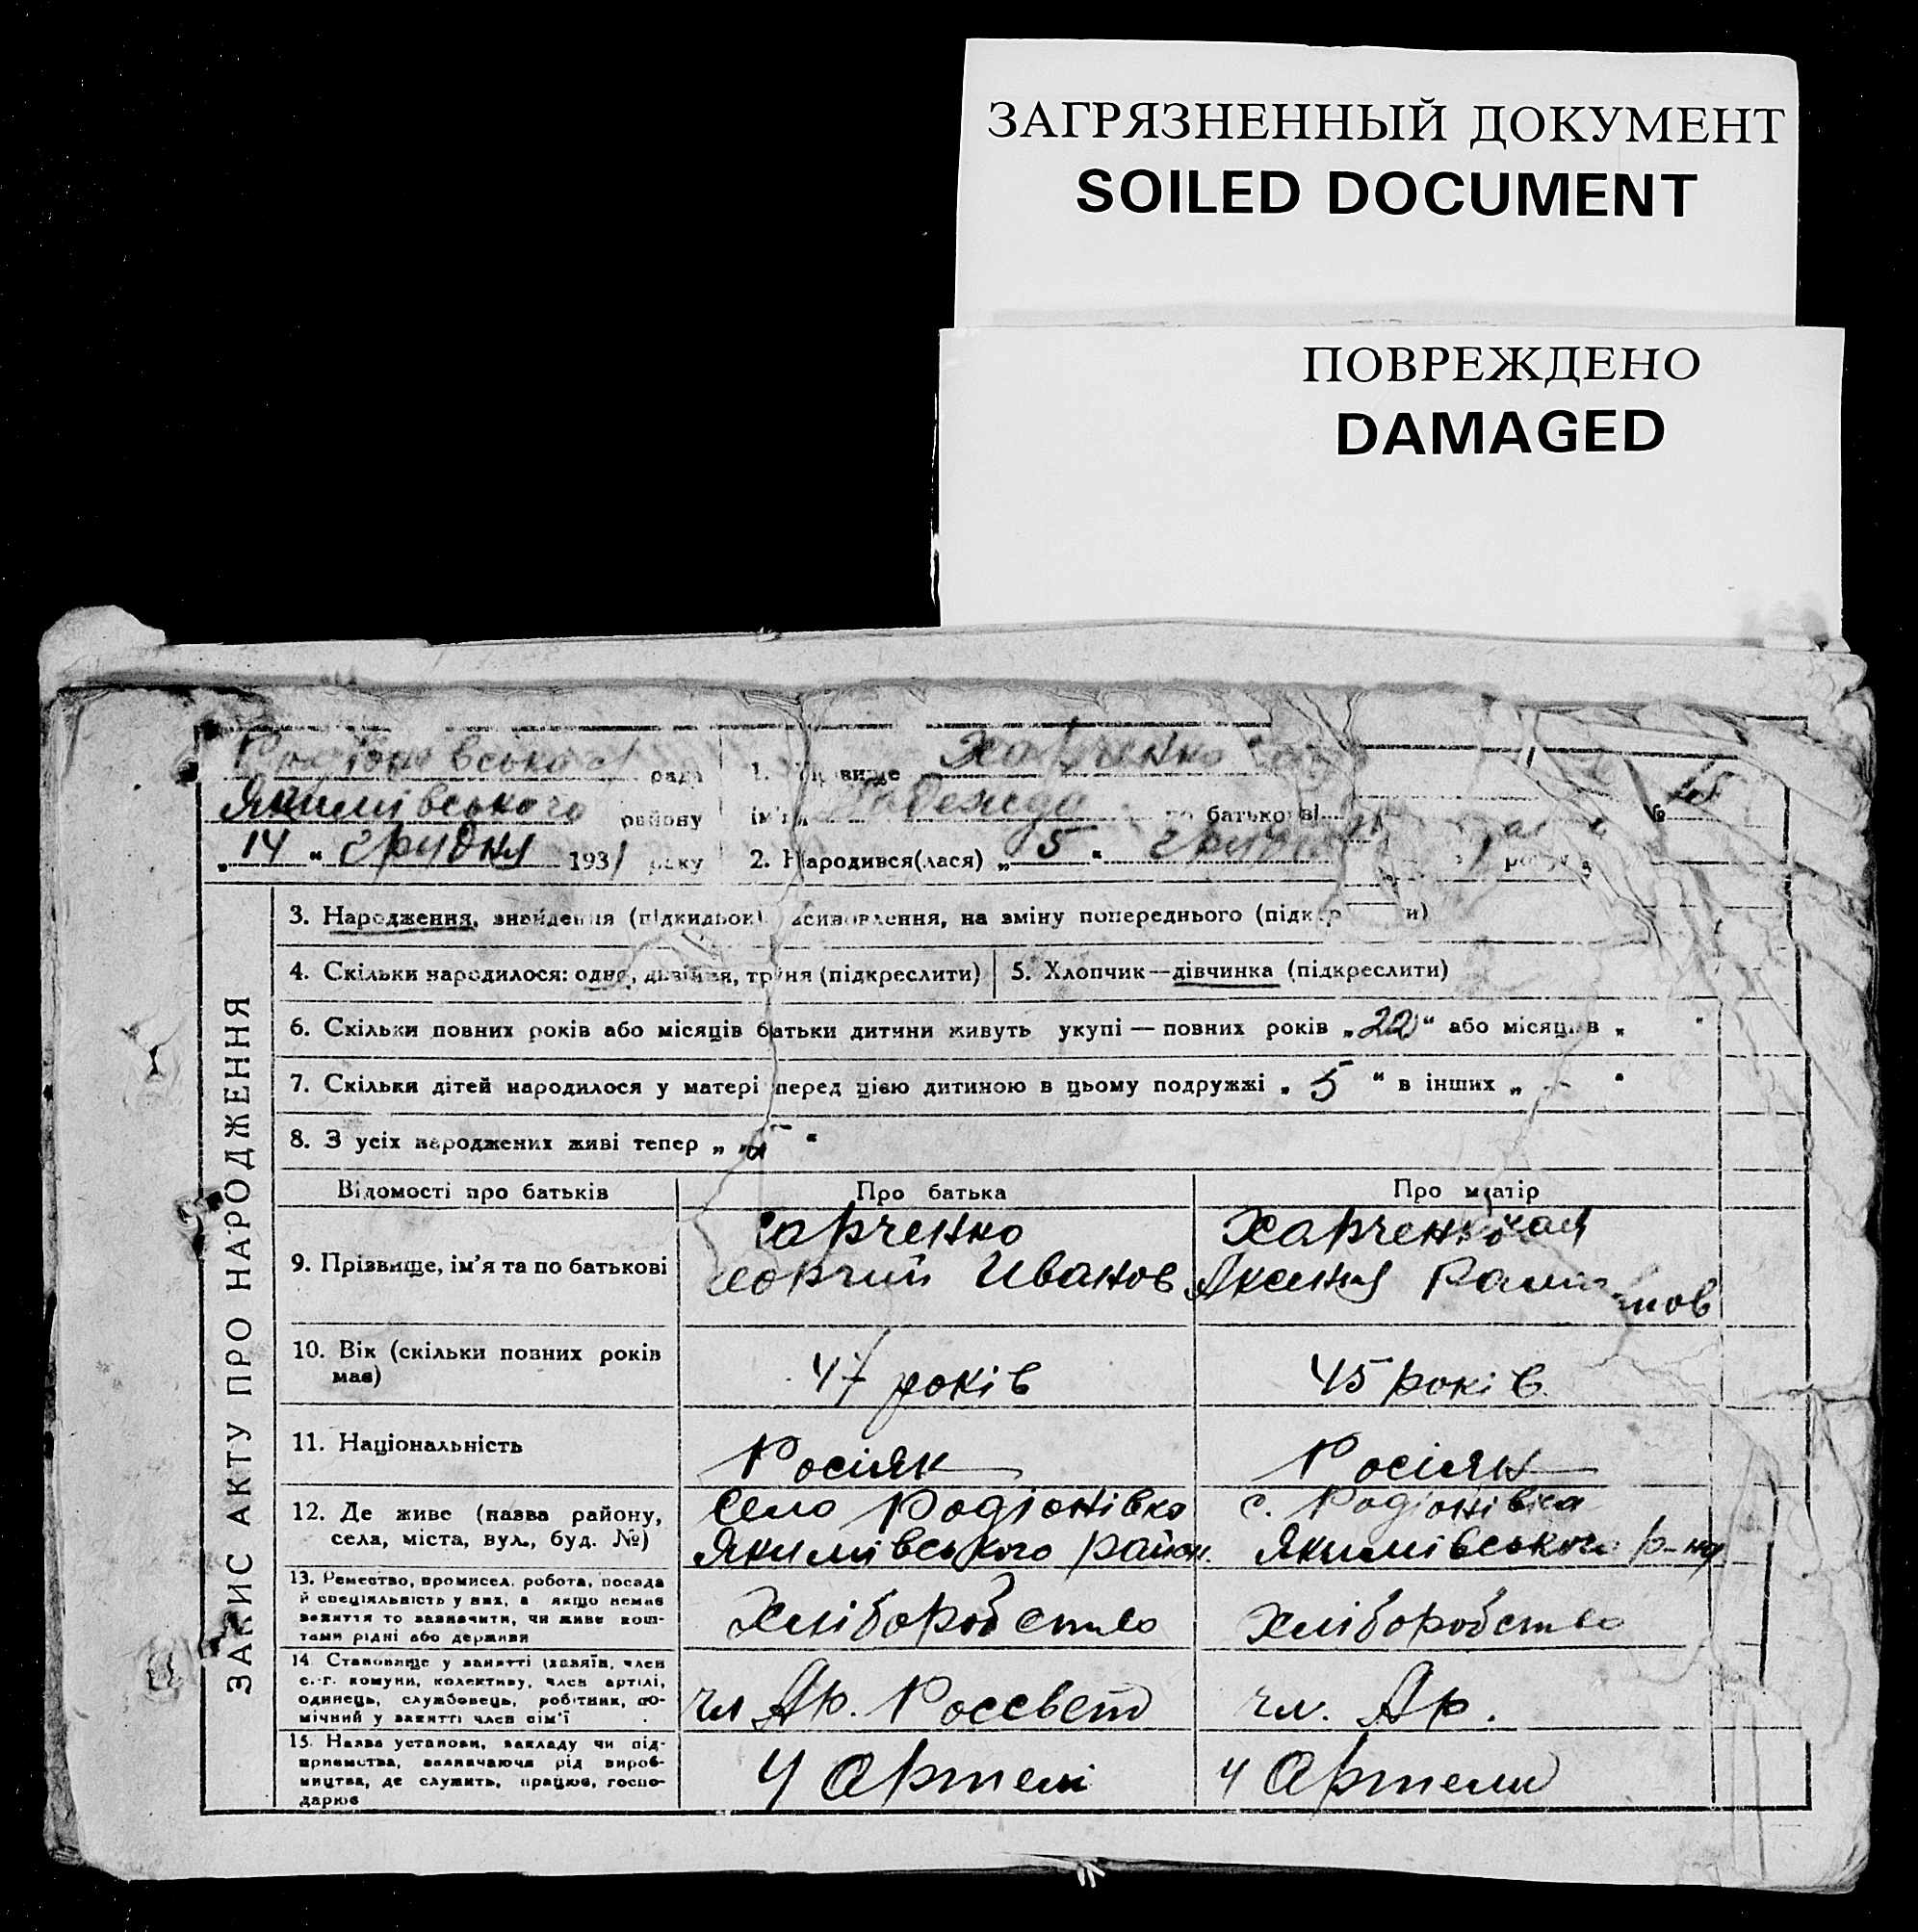 ЗАГРЯЗНЕННЫЙ ДОКУМЕНТ
SOILED DOCUMENT
ПОВРЕЖДЕНО
DAMAGED
рада
Якимівського району
„ 14 “ грудня 1931 року
1. Прізвище Харченко
ім'я Надежда по батькові
2. Народився(лася) „ 5 “
№ 15
ЗАПИС АКТУ ПРО НАРОДЖЕННЯ
3. Народження, знайдення (підкидьок), всиновлення, на зміну попереднього
4. Скільки народилося: одне, двійня, тройня (підкреслити)
5. Хлопчик—дівчинка (підкреслити)
6. Скільки повних років або місяців батьки дитини живуть укупі — повних років „ 22 “ або місяців „ “
7. Скільки дітей народилося у матері перед цією дитиною в цьому подружжі „ 5 “ в інших „ - “
8. З усіх народжених живі тепер „
Відомості про батьків
Про батька
Про матір
9. Прізвище, ім'я та по батькові
арченко
Иванов
Харченкокая
Аксиния
10. Вік (скільки повних років
має)
47 років
45 років
11. Національність
Росіяк
Росіяк
12. Де живе (назва району,
села, міста, вул., буд. №)
Село Родіонівка
Якимівського район.
с. Родіонівка
Якимівського р-ну
13. Ремество, промисел, робота, посада
й спеціяльність у них, а якщо немає
заняття то зазначити, чи живе кош-
тами рідні або держави
Хліборобство
Хліборобство
14. Становище у занятті (хазяїн, член
с.-г. комуни, колективу, член артілі,
одинець, службовець, робітник, по-
мічний у занятті член сім'ї
чл Ар. Россвет
чл. Ар.
15. Назва установи, закладу чи під-
приємства, зазначаючи рід вироб-
ництва, де служить, працює, госпо-
дарює
У Артелі
У Артели